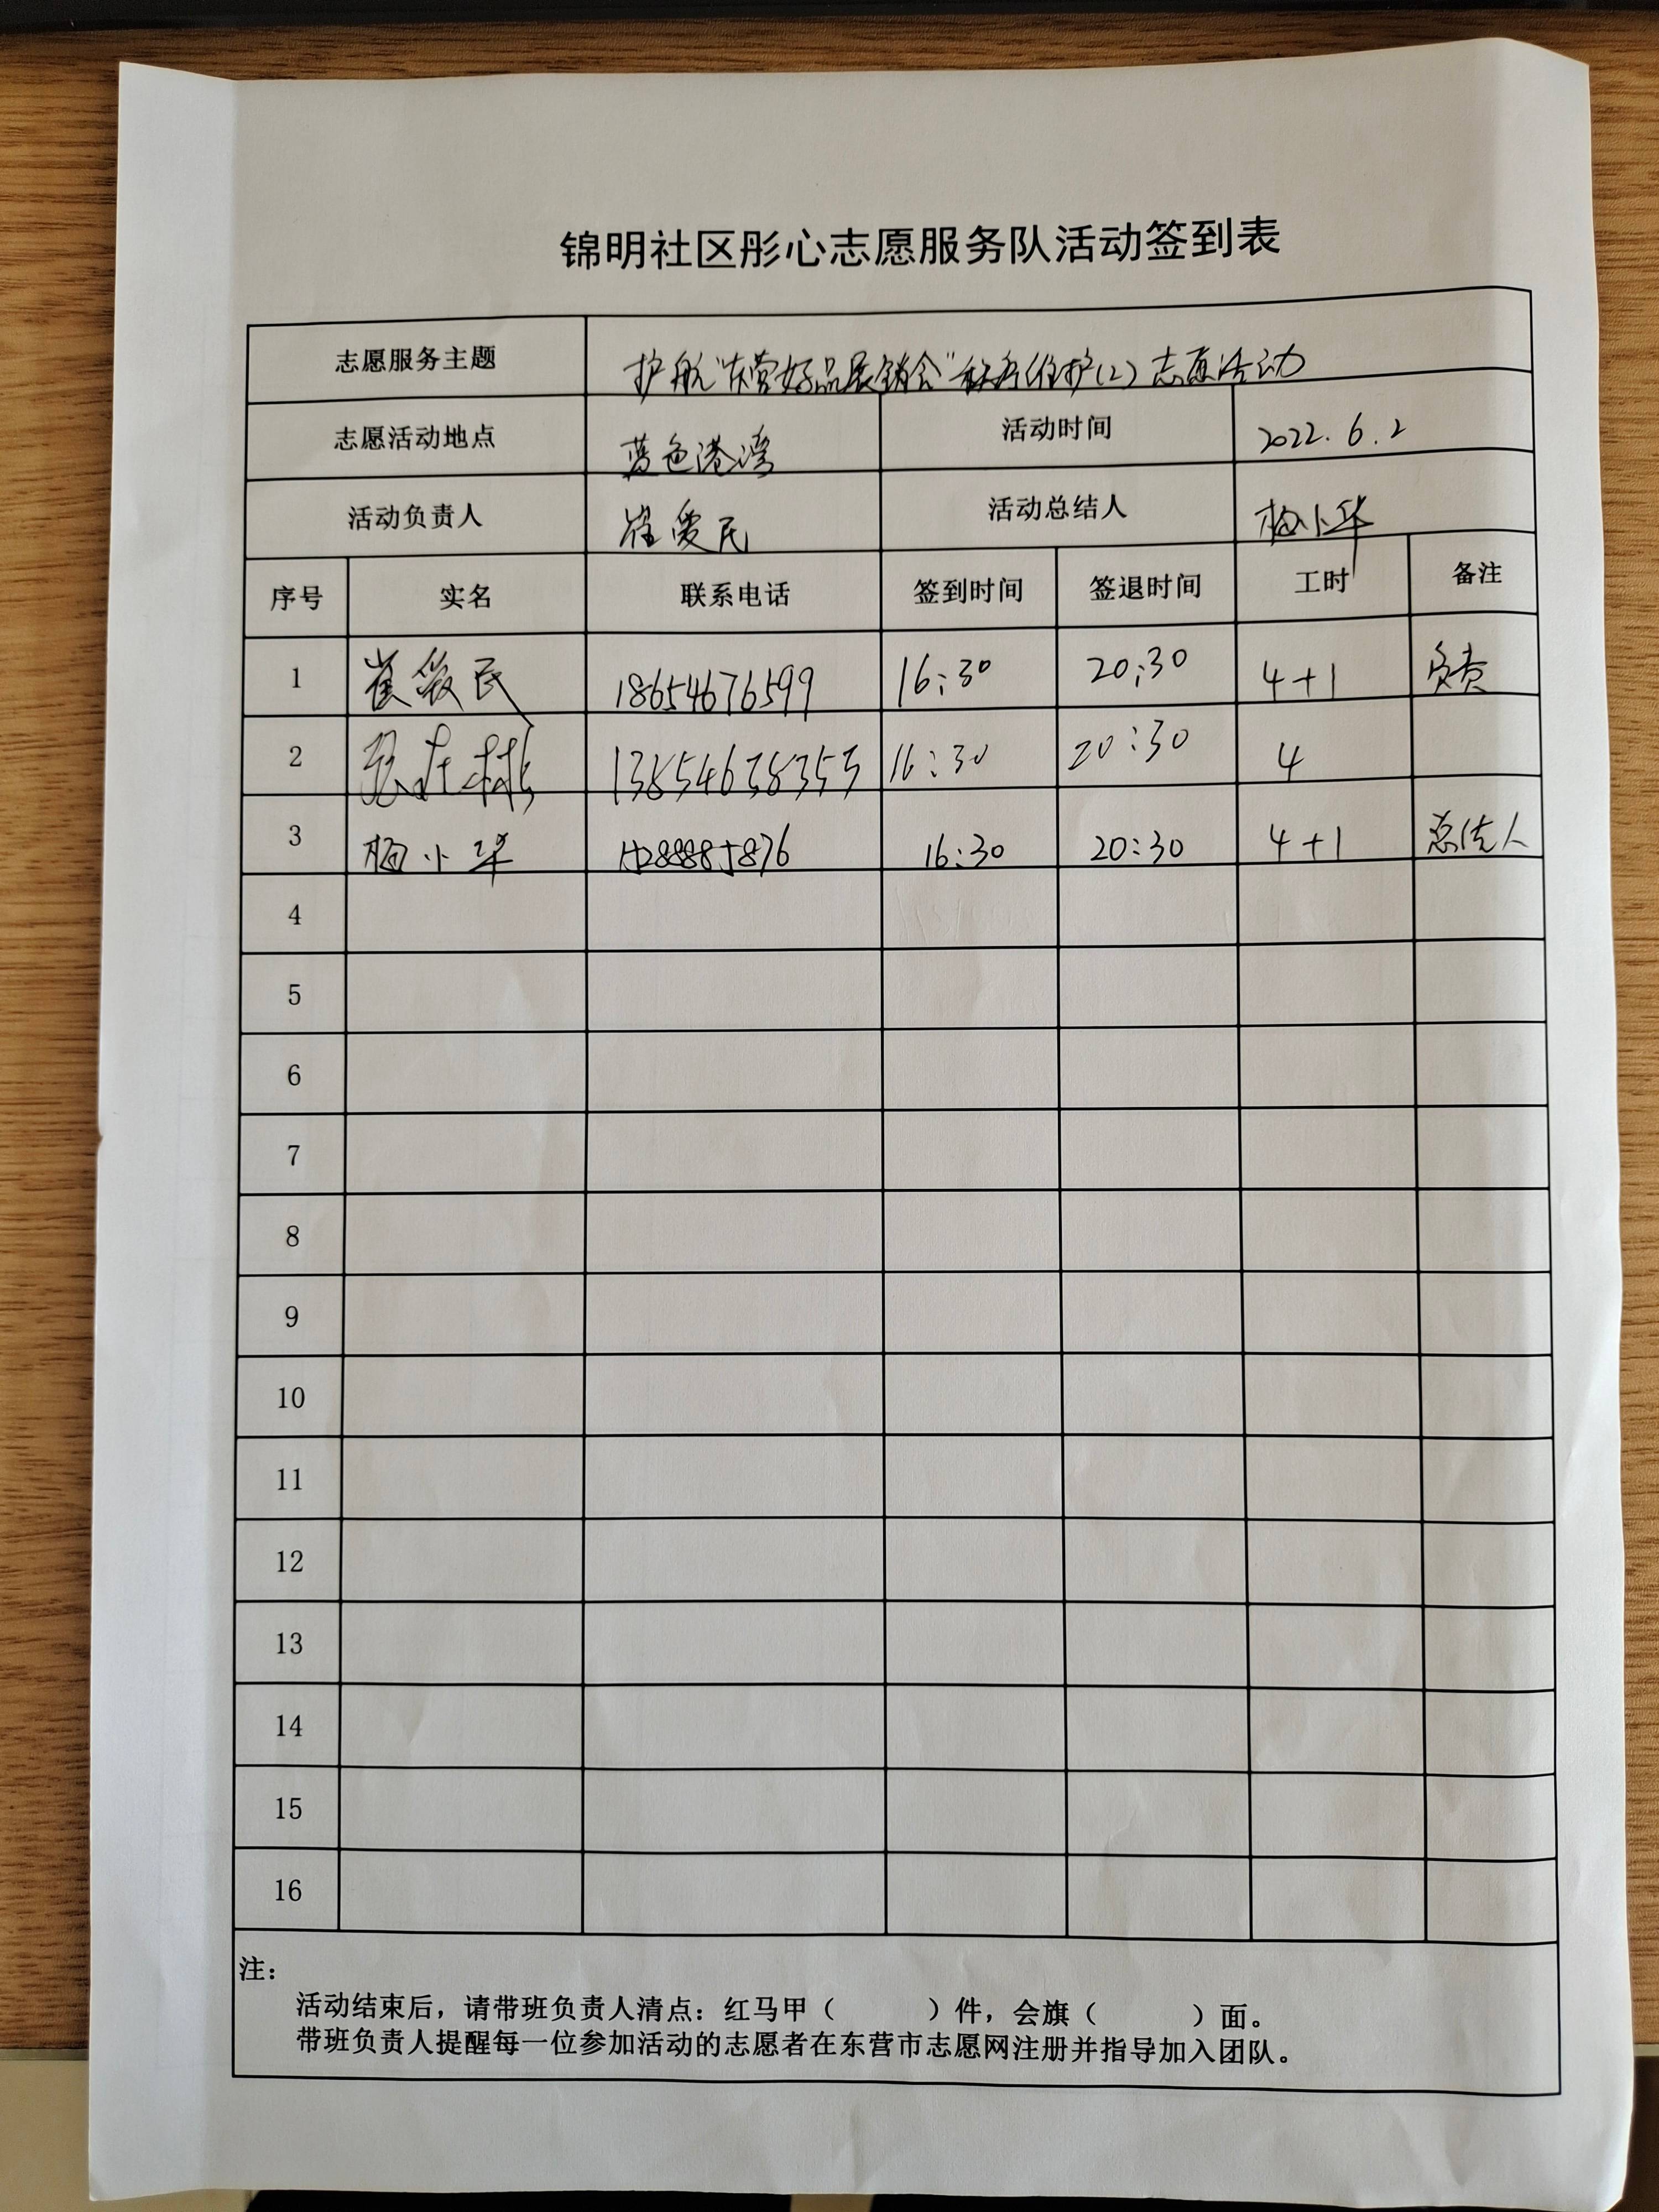 锦明社区彤心志愿服务队活动签到表
志愿服务主题 护航“东营好品展销会”秩序维护(2)志愿活动
志愿活动地点 蓝色港湾 活动时间 2022.6.2
活动负责人 崔爱民 活动总结人 梅小华
序号 实名 联系电话 签到时间 签退时间 工时 备注
1 崔爱民 18654676599 16:30 20:30 4+1 负责
2 16:30 20:30 4
3 梅小华 16:30 20:30 4+1 总结人
4
5
6
7
8
9
10
11
12
13
14
15
16
注：
活动结束后，请带班负责人清点：红马甲（ ）件，会旗（ ）面。
带班负责人提醒每一位参加活动的志愿者在东营市志愿网注册并指导加入团队。